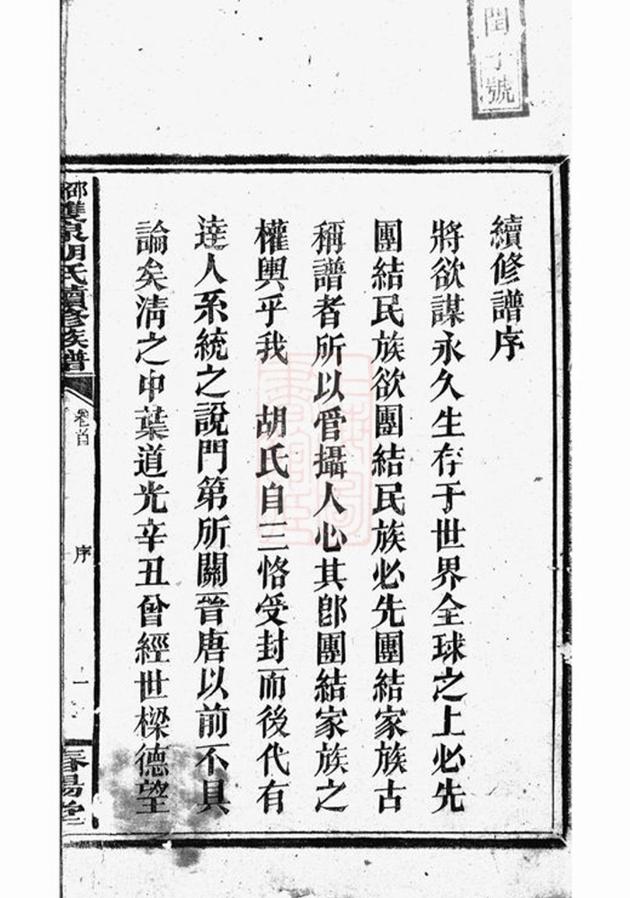 閏丁號
續修譜序
將欲謀永久生存于世界全球之上必先
團結民族欲團結民族必先團結家族古
稱譜者所以管攝人心其卽團結家族之
權輿乎我 胡氏自三恪受封而後代有
達人系統之說門第所關晉唐以前不具
論矣淸之中葉道光辛丑曾經世樑德望
邵雙泉胡氏續修族譜
卷首
序
一
春陽堂